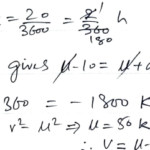 = 20/3600 = 2̶ 1/3̶6̶0̶ 180 h
gives μ̶ - 10 = μ̶ +
360 = - 1800 K
v² = μ² ⇒ μ = 50 k
∴ v = μ -